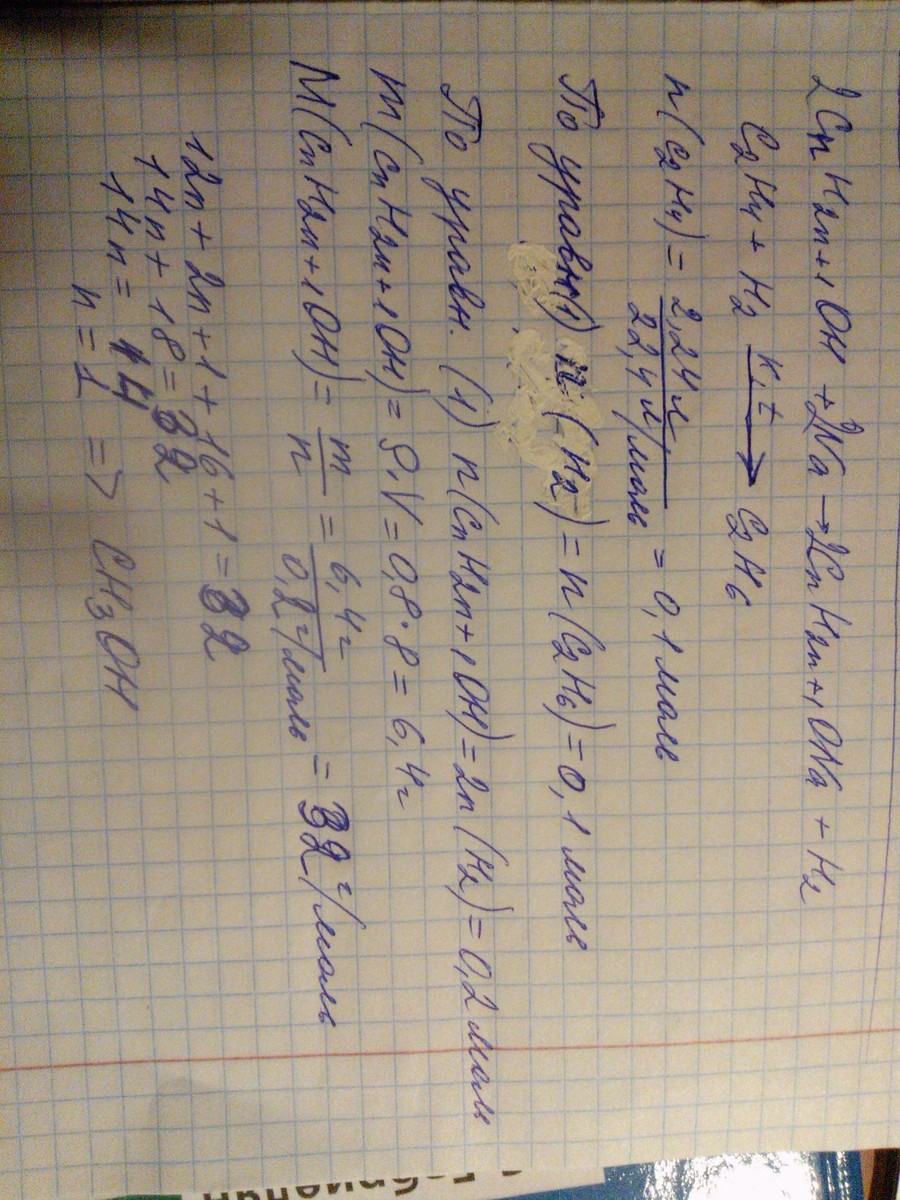 2CnH2n+1OH + 2Na → 2CnH2n+1ONa + H2
C2H4 + H2 k, t → C2H6
n(C2H4) = 2,24 л / 22,4 л/моль = 0,1 моль
По уравн(1) n (H2) = n (C2H6) = 0,1 моль
По уравн. (1) n(CnH2n+1OH) = 2n (H2) = 0,2 моль
m(CnH2n+1OH) = ρ,V = 0,8·8 = 6,4г
M(CnH2n+1OH) = m / n = 6,4г / 0,2 г/моль = 32 г/моль
12n + 2n + 1 + 16 + 1 = 32
14n + 18 = 32
14n = 14
n = 1 => CH3OH